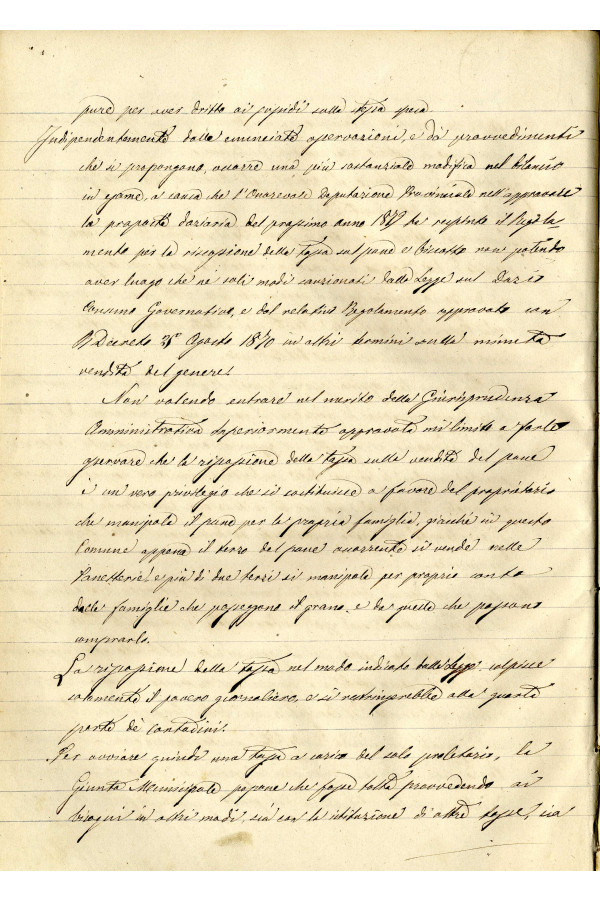 pure per aver dritto ai sussidi sulla stessa spesa
Indipendentemente dalle enunciate osservazioni, e da provvedimenti
che si propongono, occorre una più sostanziale modifica nel bilancio
in esame, a causa che l'Onorevole Deputazione Provinciale nell'approvare
la proposta daziaria del prossimo anno ha respinto il Regola-
mento per la riscossione della tassa sul pane e biscotto non potendo
aver luogo che ne' soli modi sanzionati dalla Legge sul Dazio
Consumo Governativo, e dal relativo Regolamento approvato con
R. Decreto 25 Agosto 1870 in altri termini sulla minuta
vendita del genere.
Non volendo entrare nel merito della Giurisprudenza
Amministrativa superiormente approvata mi limito a farle
osservare che la riscossione della tassa sulla vendita del pane
è un vero privilegio che si costituisce a favore del proprietario
che manipola il pane per la propria famiglia, giacchè in questo
Comune appena il terzo del pane occorrente si vende nelle
Panetterie, e più di due terzi si manipola per proprio conto
dalle famiglie che posseggono il grano, e da quelle che possono
comprarlo.
La riscossione della tassa nel modo indicato dalla Legge colpisce
solamente il povero giornaliero, e si restringerebbe alla quarta
parte de' contadini.
Per ovviare quindi una tassa a carico del solo proletario, la
Giunta Municipale propone che fosse tolta provvedendo ai
bisogni in altri modi, sia con la istituzione di altre tasse, sia